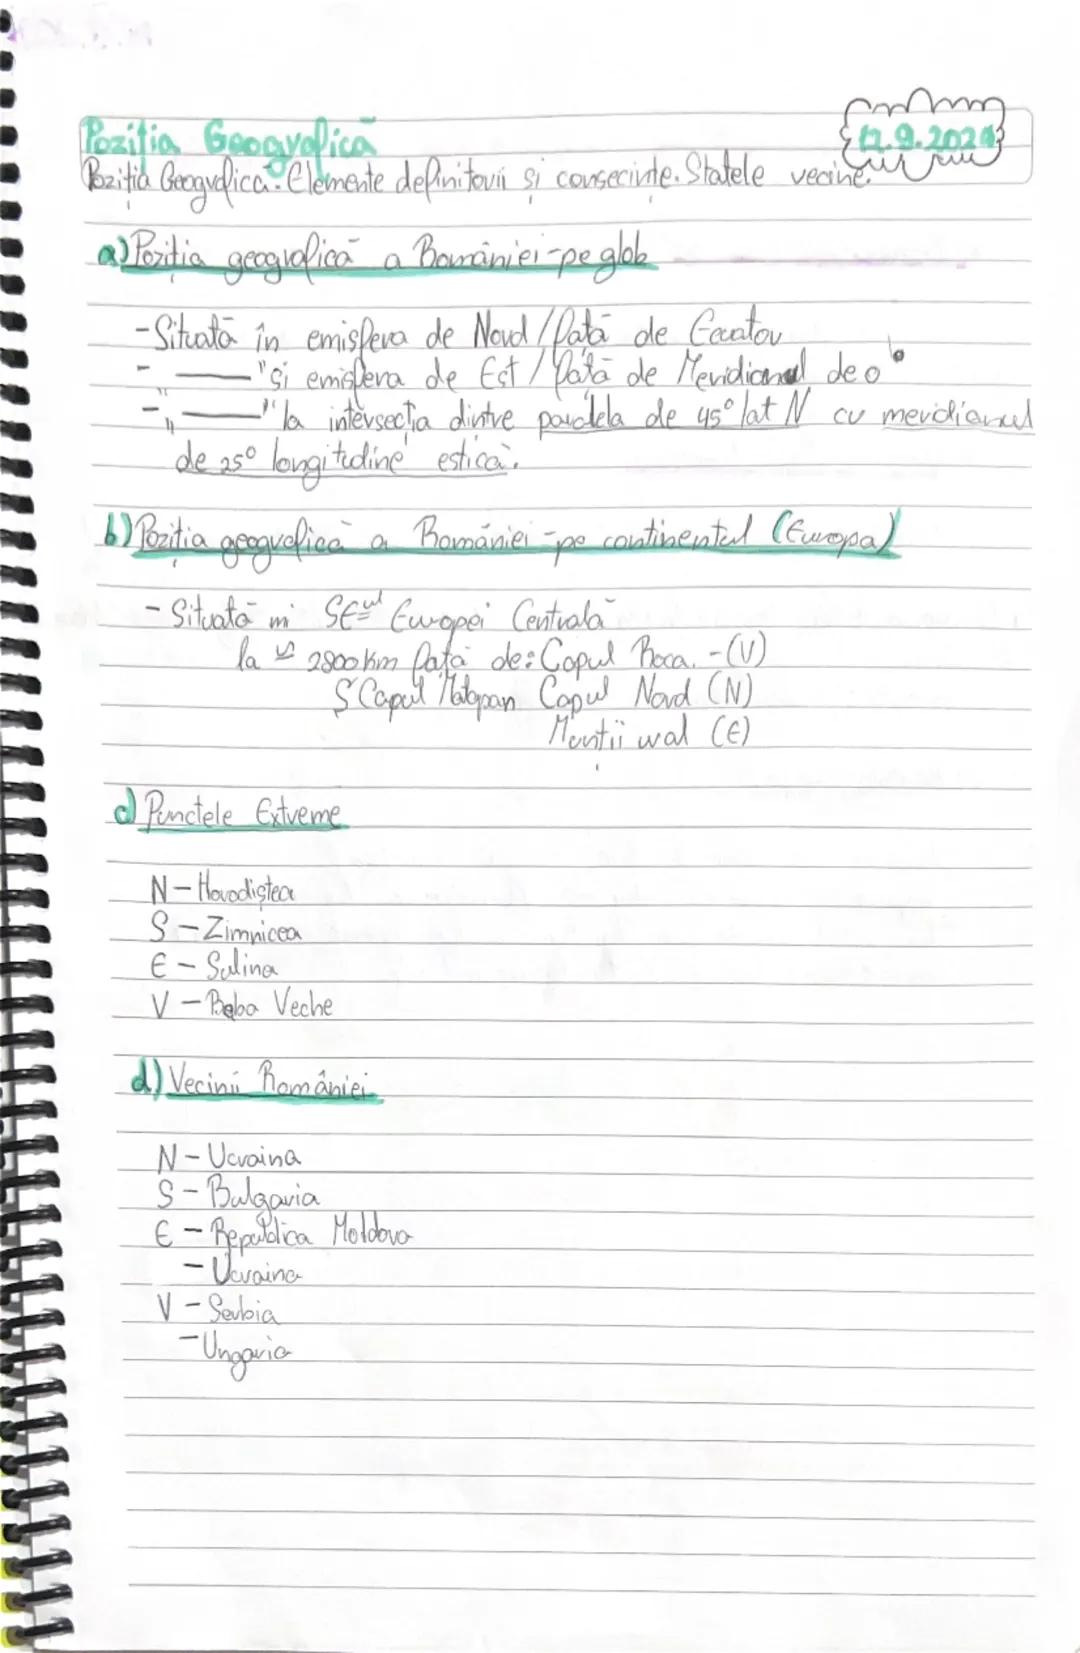 Poziția Geografică
12.9.2024
Poziția Geografică. Elemente definitorii și consecințe. Statele vecine.
a) Poziția geografică a României-pe glob
- Situată în emisfera de Nord / față de Ecuator
- " —— " și emisfera de Est / față de Meridianul de 0°
- " —— " la intersecția dintre paralela de 45° lat N cu meridianul
de 25° longitudine estică.
b) Poziția geografică a României -pe continentul (Europa)
- Situată în SE-ul Europei Centrală
la ≃ 2800 km față de: Capul Roca. - (V)
S Capul Matapan Capul Nord (N)
Munții ural (E)
c) Punctele Extreme
N - Horodiștea
S - Zimnicea
E - Sulina
V - Beba Veche
d) Vecinii României
N - Ucraina
S - Bulgaria
E - Republica Moldova
- Ucraina
V - Serbia
- Ungaria